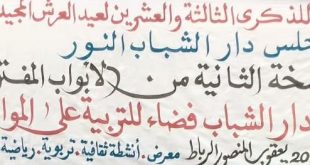 للذكرى الثالثة والعشرين لعيد العرش المجيد
مجلس دار الشباب النور
خة الثانية من الأبواب المفت
دار الشباب فضاء للتربية على الموا
20 يعقوب المنصور الرباط معرض، أنشطة ثقافية، تربوية، رياضية